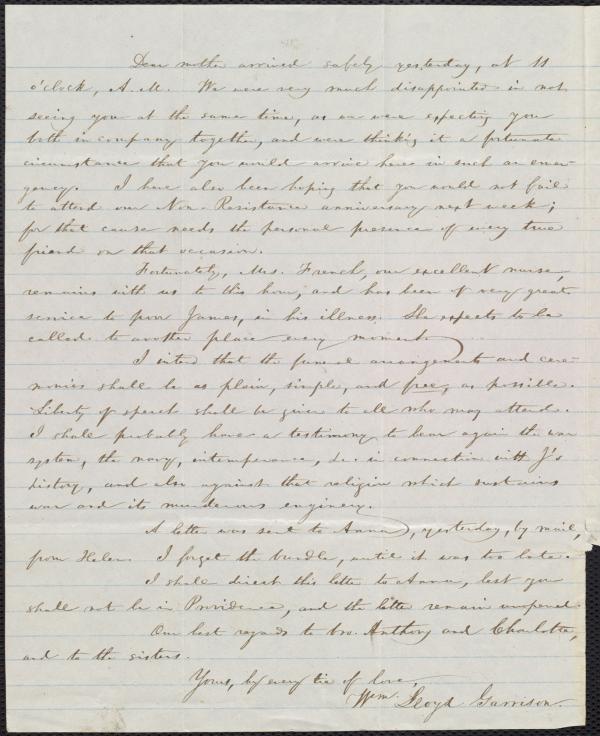 Dear mother arrived safely yesterday, at 11
o'clock, A.M. We were very much disappointed in not
seeing you at the same time, as we were expecting you
both in company together, and were thinking it a fortunate
circumstance that you would arrive here in such an emer-
gency. I have also been hoping that you would not fail
to attend our Non-Resistance anniversary next week;
for that cause needs the personal presence of every true
friend on that occasion.
Fortunately, Mrs. French, our excellent nurse,
remains with us to this hour, and has been of very great
service to poor James, in his illness. She expects to be
called to another place every moment.
I intend that the funeral arrangements and cere-
monies shall be as plain, simple, and free, as possible.
Liberty of speech shall be given to all who may attend.
I shall probably have a testimony to bear again the war
system, the navy, intemperance, &c. in connection with J's
history, and also against that religion which sustains
war and its murderous enginery.
A letter was sent to Anna, yesterday, by mail,
from Helen. I forgot the bundle, until it was too late.
I shall direct this letter to Anna, lest you
shall not be in Providence, and the letter remain unopened.
Our best regards to bro. Anthony and Charlotte,
and to the sisters.
Yours, by every tie of love,
Wm. Lloyd Garrison.